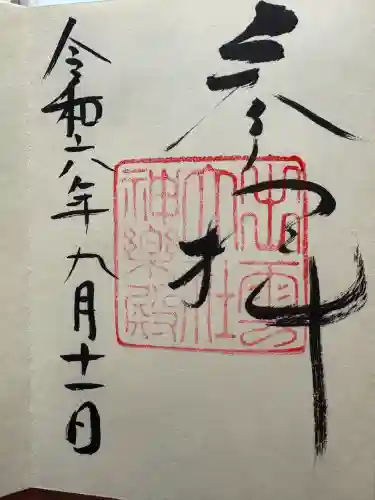 参拝
出雲
大社
神樂殿
令和六年九月十一日